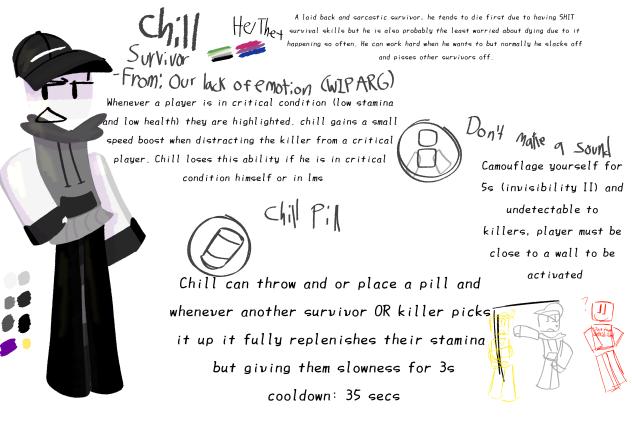 Chill
He/They
Survivor
-From: Our lack of emotion (WIP ARG)
A laid back and sarcastic survivor, he tends to die first due to having SHIT
survival skills but he is also probably the least worried about dying due to it
happening so often. He can work hard when he wants to but normally he slacks off
and pisses other survivors off.
Whenever a player is in critical condition (low stamina
and low health) they are highlighted. chill gains a small
speed boost when distracting the killer from a critical
player. Chill loses this ability if he is in critical
condition himself or in lms
Don't make a sound
Camouflage yourself for
5s (invisibility II) and
undetectable to
killers, player must be
close to a wall to be
activated
Chill Pill
Chill can throw and or place a pill and
whenever another survivor OR killer picks
it up it fully replenishes their stamina
but giving them slowness for 3s
cooldown: 35 secs